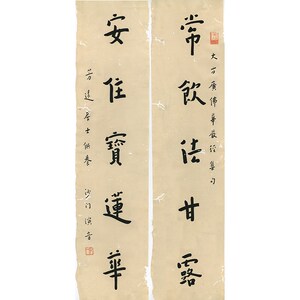 大方廣佛華嚴經集句
常飲法甘露
安住寶蓮華
芳遠居士供養
沙門演音